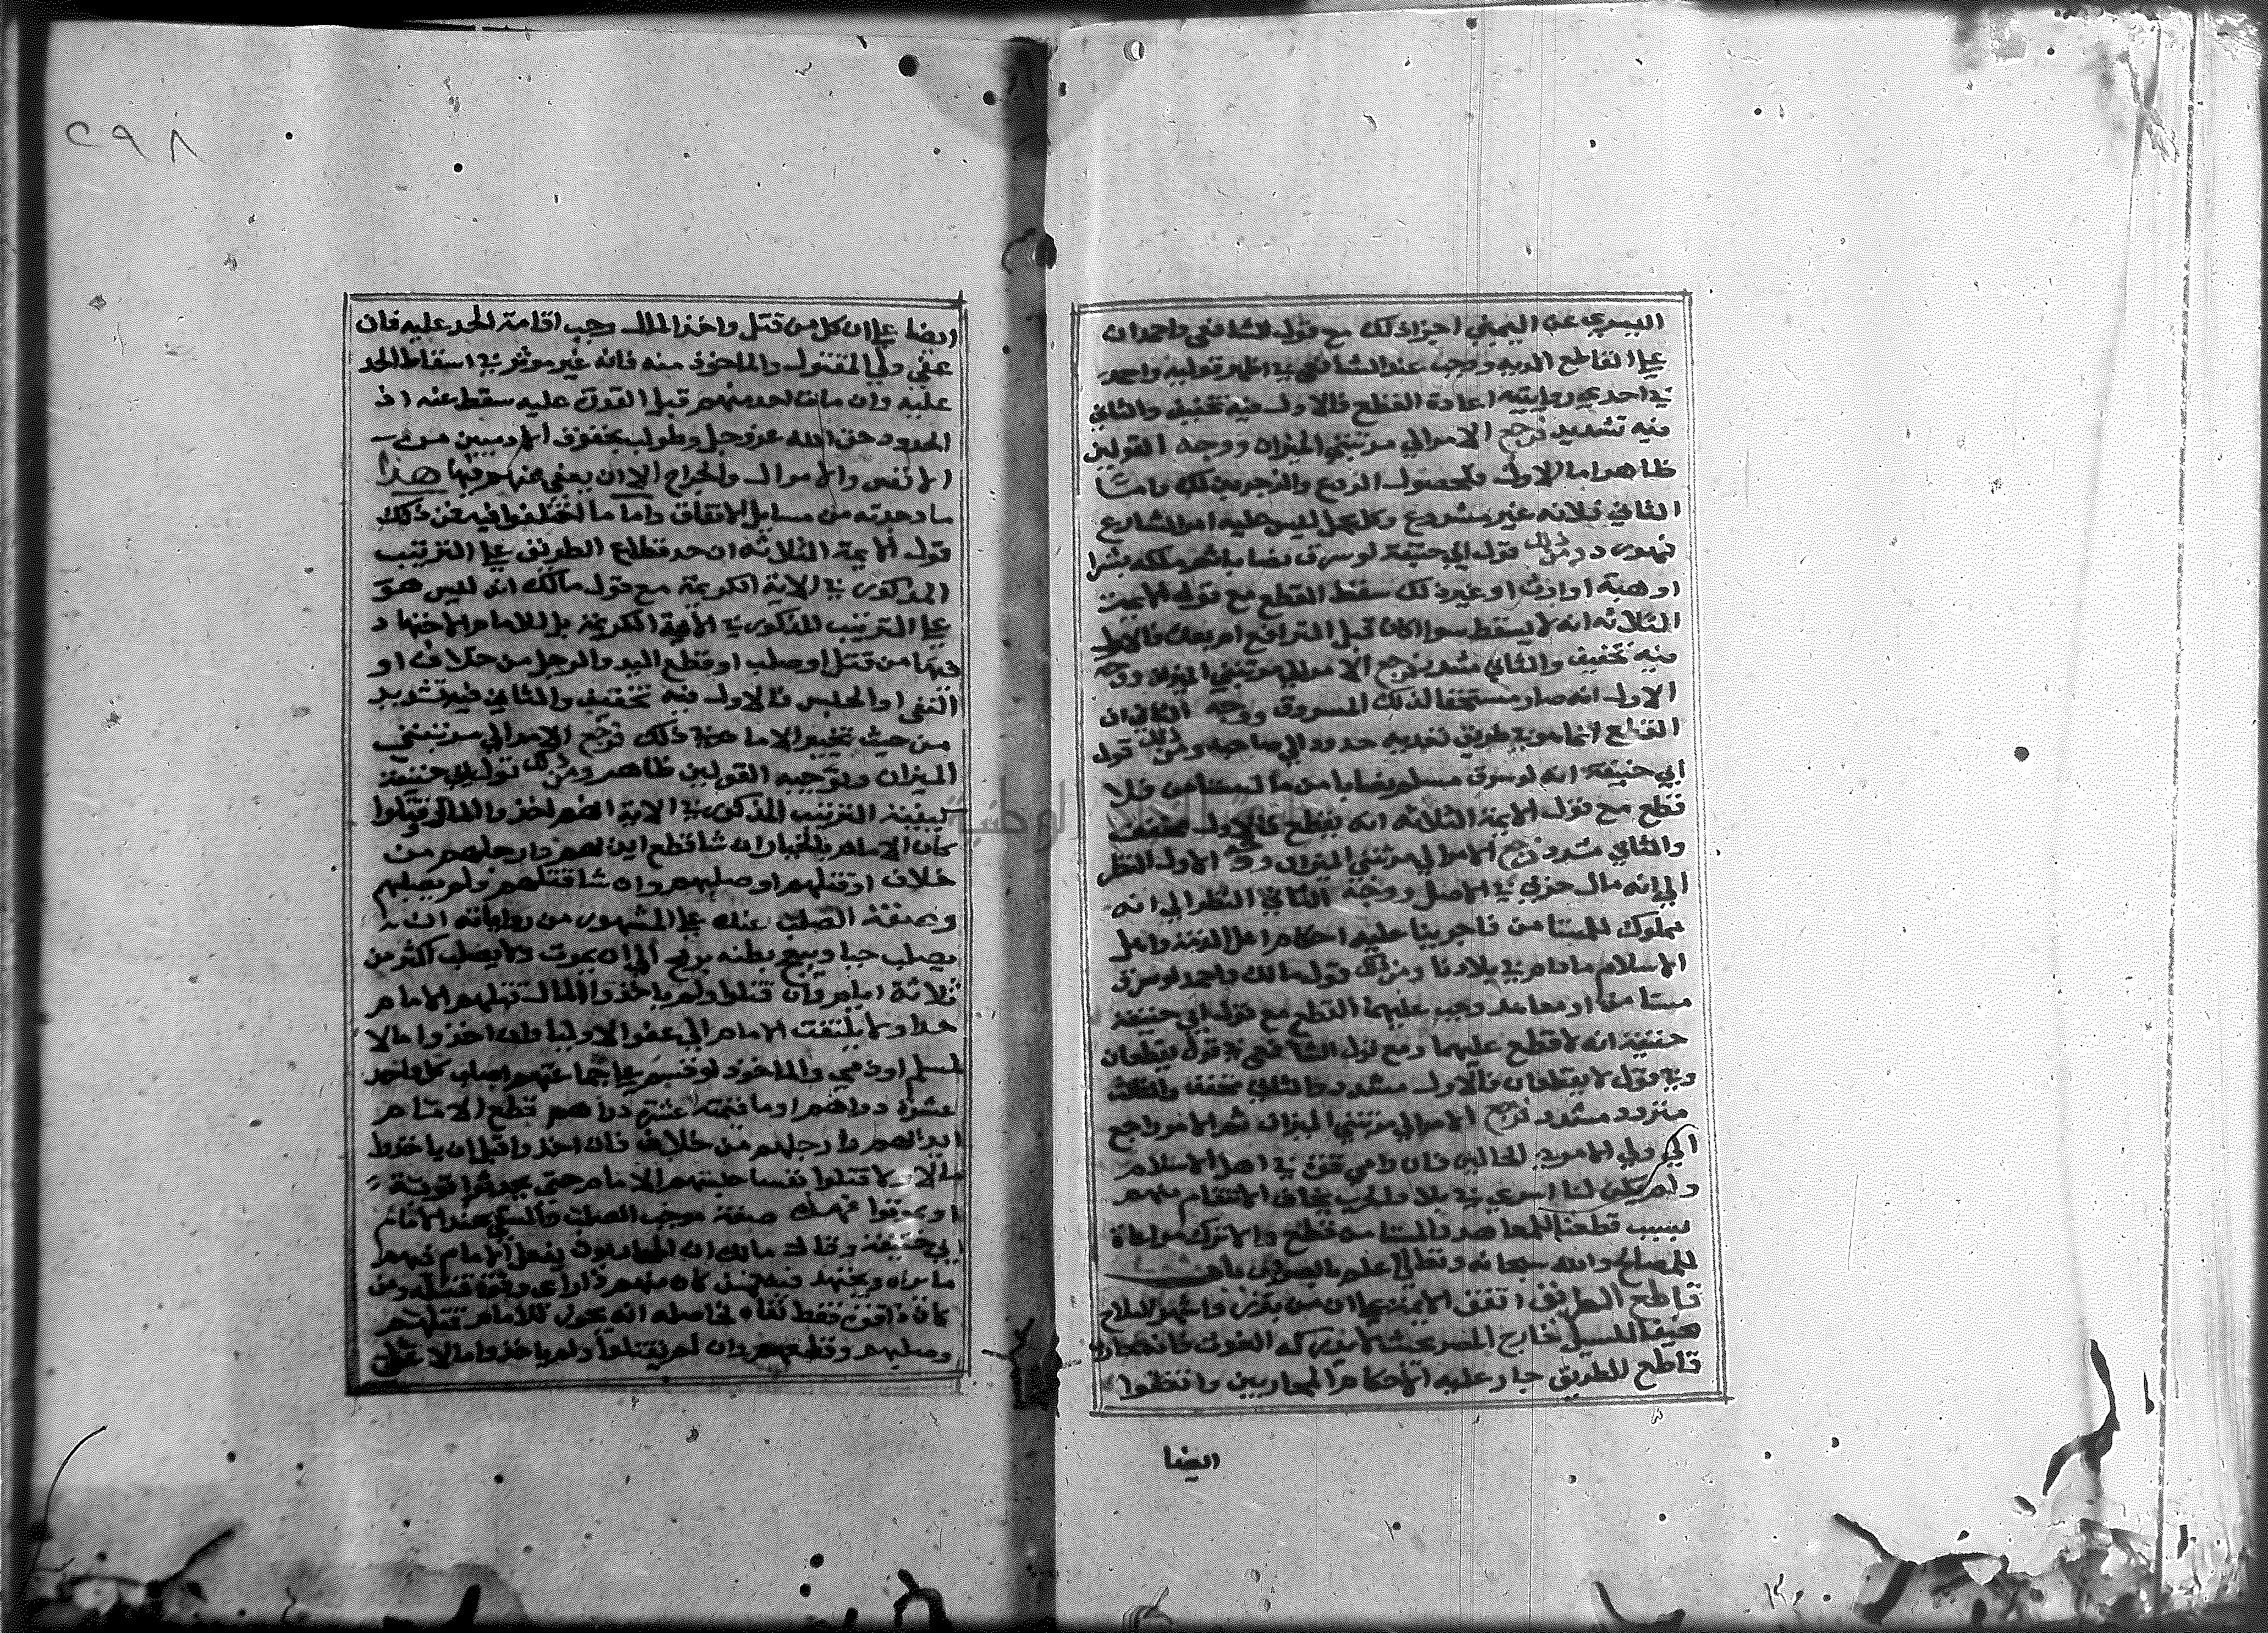 اليسري عن اليمني اجزا ذلك مع قول الشافعي واحمد ان
علي القاطع الديه ووجب عند الشافعي في اظهر قوليه واحمد
في احدي روايتيه اعادة القطع فالاول فيه تخفيف والثاني
فيه تشديد فرجع الامر الي مرتبتي الميزان ووجه القولين
ظاهر اما الاول فلحصول الردع والزجر بذلك واما
الثاني فلانه غير مشروع وكل عمل ليس عليه امر الشارع
فهو رد ومن ذلك قول ابي حنيفة لو سرق نصابا ثم ملكه بشرا
او هبة او ارث او غير ذلك سقط القطع مع قول الايمة
الثلاثه انه لا يسقط سوا كان قبل الترافع ام بعده فالاول
فيه تخفيف والثاني مشدد فرجع الامر الي مرتبتي الميزان ووجه
الاول انه صار مستحقا لذلك المسروق ووجه الثاني ان
القطع انما هو بطريق تعديه حدود الي صاحبه ومن ذلك قول
ابي حنيفة انه لو سرق مسلم نصابا من مال مستامن فلا
قطع مع قول الايمة الثلاثه انه يقطع فالاول مخفف
والثاني مشدد فرجع الامر الي مرتبتي الميزان ووجه الاول النظر
الي انه مال حربي في الاصل ووجه الثاني النظر الي انه
مملوك للمستامن فاجرينا عليه احكام اهل الذمة واهل
الاسلام مادام في بلادنا ومن ذلك قول مالك واحمد لو سرق
مستامن او معاهد وجب عليهما القطع مع قول ابي حنيفة
حنيفة انه لا قطع عليهما ومع قول الشافعي في قول يقطعان
وفي قول لا يقطعان فالاول مشدد والثاني مخفف والثالث
متردد مشدد فرجع الامر الي مرتبتي الميزان ثم الامر راجع
الي ولي الامر في الحالين فان راي قوة في اهل الاسلام
ولم يكن لنا اسري في بلاد الحرب يخاف الانتقام منهم
بسبب قطعنا للمعاهد والمستامن قطع والا ترك مراعاة
للمصالح والله سبحانه وتعالي اعلم بالصواب باب
قاطع الطريق اتفق الايمة علي ان من برز واشهر السلاح
مخيفا للسبيل خارج المصر بحيث لا يدركه الغوث فانه محارب
قاطع للطريق جار عليه احكام المحاربين واتفقوا
ايضا
٢٩٨
ايضا علي ان كل من قتل واخذ المال وجب اقامة الحد عليه فان
عفي ولي المقتول والماخوذ منه فانه غير موثر في اسقاط الحد
عليه وان مات احد منهم قبل القدرة عليه سقط عنه اذ
الحدود حق الله عز وجل وطولب بحقوق الادميين من
الانفس والاموال والجراح الا ان يعفي عنهم فيها هذا
ما وجدته من مسايل الاتفاق واما ما اختلفوا فيه فمن ذلك
قول الايمة الثلاثه ان حد قطاع الطريق علي الترتيب
المذكور في الاية الكريمة مع قول مالك انه ليس هو
علي الترتيب المذكور في الاية الكريمة بل للامام الاجتهاد
فيها من قتل او صلب او قطع اليد والرجل من خلاف او
النفي او الحبس فالاول فيه تخفيف والثاني فيه تشديد
من حيث تخيير الامام في ذلك فرجع الامر الي مرتبتي
الميزان وتوجيه القولين ظاهر ومن ذلك قول ابي حنيفة
كيفية الترتيب المذكور في الاية انهم اخذوا المال وقتلوا
كان الامام بالخيار ان شا قطع ايديهم وارجلهم من
خلاف او قتلهم او صلبهم وان شا قتلهم ولم يصلبهم
وصفة الصلب عنده علي المشهور من رواياته ان
يصلب حيا ويبعج بطنه برمح الي ان يموت ولا يصلب اكثر من
ثلاثة ايام وان قتلوا ولم ياخذوا المال قتلهم الامام
حدا ولا يلتفت الامام الي عفو الاوليا وان اخذوا مالا
لمسلم او ذمي والماخوذ لو قسم علي جماعتهم اصاب كل واحد
عشرة دراهم او ما قيمته عشرة دراهم قطع الامام
ايديهم وارجلهم من خلاف فان اخذوا قبل ان ياخذوا
مالا ولا قتلوا نفسا حبسهم الامام حتي يحدثوا توبة
او يموتوا فهذه صفة موجب الصلب والنفي عند الامام
ابي حنيفة وقال مالك ان المحاربون يفعل الامام فيهم
ما يراه ويجتهد فيه فمن كان منهم ذا راي وقوة قتله ومن
كان ذا قوة فقط نفاه فحاصله انه يجوز للامام قتلهم
وصلبهم وقطعهم وان لم يقتلوا ولم ياخذوا مالا علي